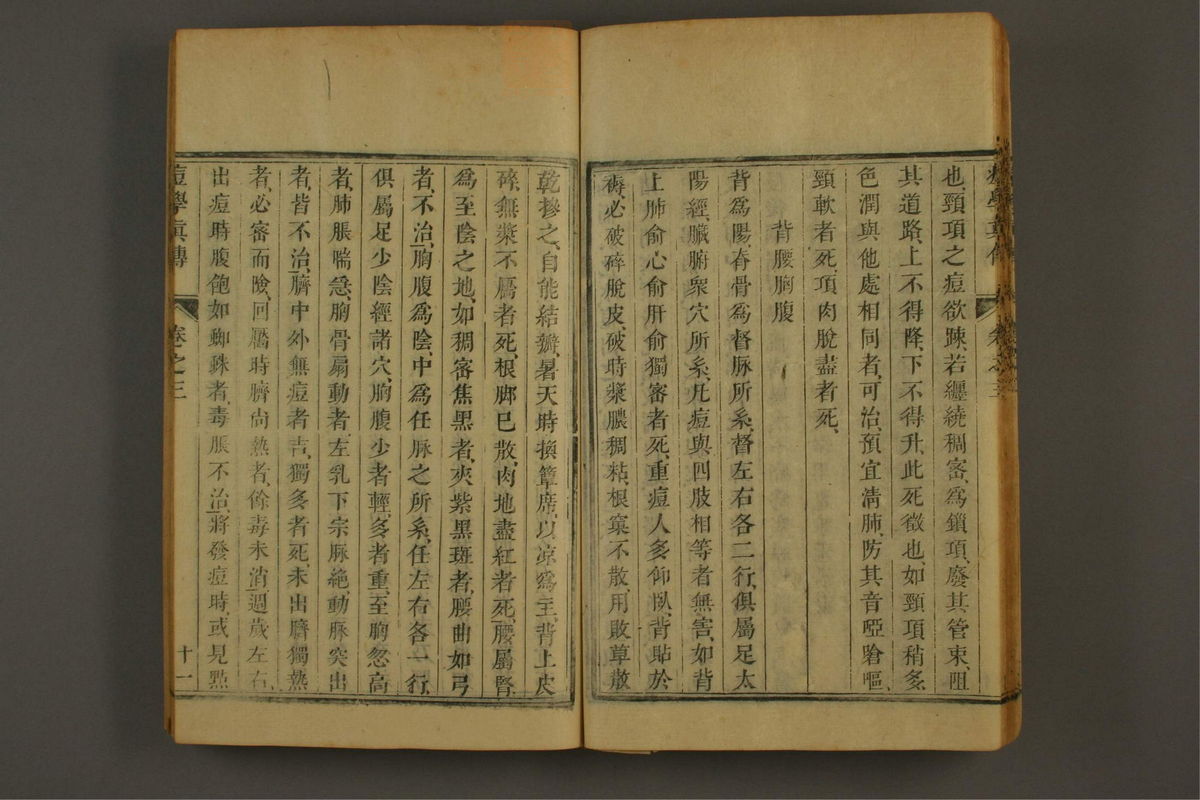 也頸項之痘欲踈若纒繞稠密爲鎖項廢其管束阻
其道路上不得降下不得升此死徵也如頸項稍多
色潤與他處相同者可治預宜淸肺防其音啞嗆嘔
頸軟者死項肉脫盡者死
背腰胸腹
背爲陽脊骨爲督脉所系督左右各二行俱屬足太
陽經臟腑衆穴所系凡痘與四肢相等者無害如背
上肺俞心俞肝俞獨密者死重痘人多仰臥背貼於
褥必破碎脫皮破時漿膿稠粘根窠不散用敗草散
乾摻之自能結瓣暑天時換簟席以凉爲主背上皮
碎無漿不靨者死根脚已散肉地盡紅者死腰屬腎
爲至陰之地如稠密焦黑者夾紫黑斑者腰曲如弓
者不治胸腹爲陰中爲任脉之所系任左右各一行
俱屬足少陰經諸穴胸腹少者輕多者重至胸忽高
者肺脹喘急胸骨扇動者左乳下宗脉絶動脉突出
者皆不治臍中外無痘者吉獨多者死未出臍獨熱
者必密而險回靨時臍尙熱者餘毒未消週歲左右
出痘時腹飽如蜘蛛者毒脹不治將發痘時或見㸃
痘學眞傳
卷之三
十一